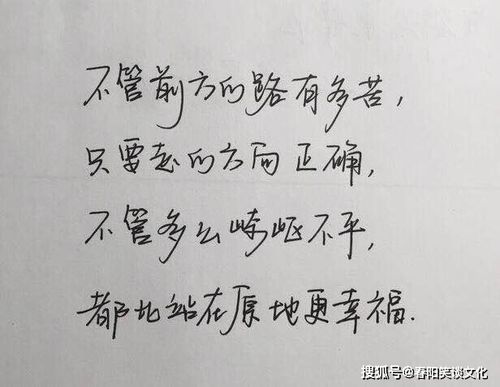 不管前方的路有多苦,
只要走的方向正确,
不管多么崎岖不平,
都比站在原地更幸福.
搜狐号@春阳笑谈文化